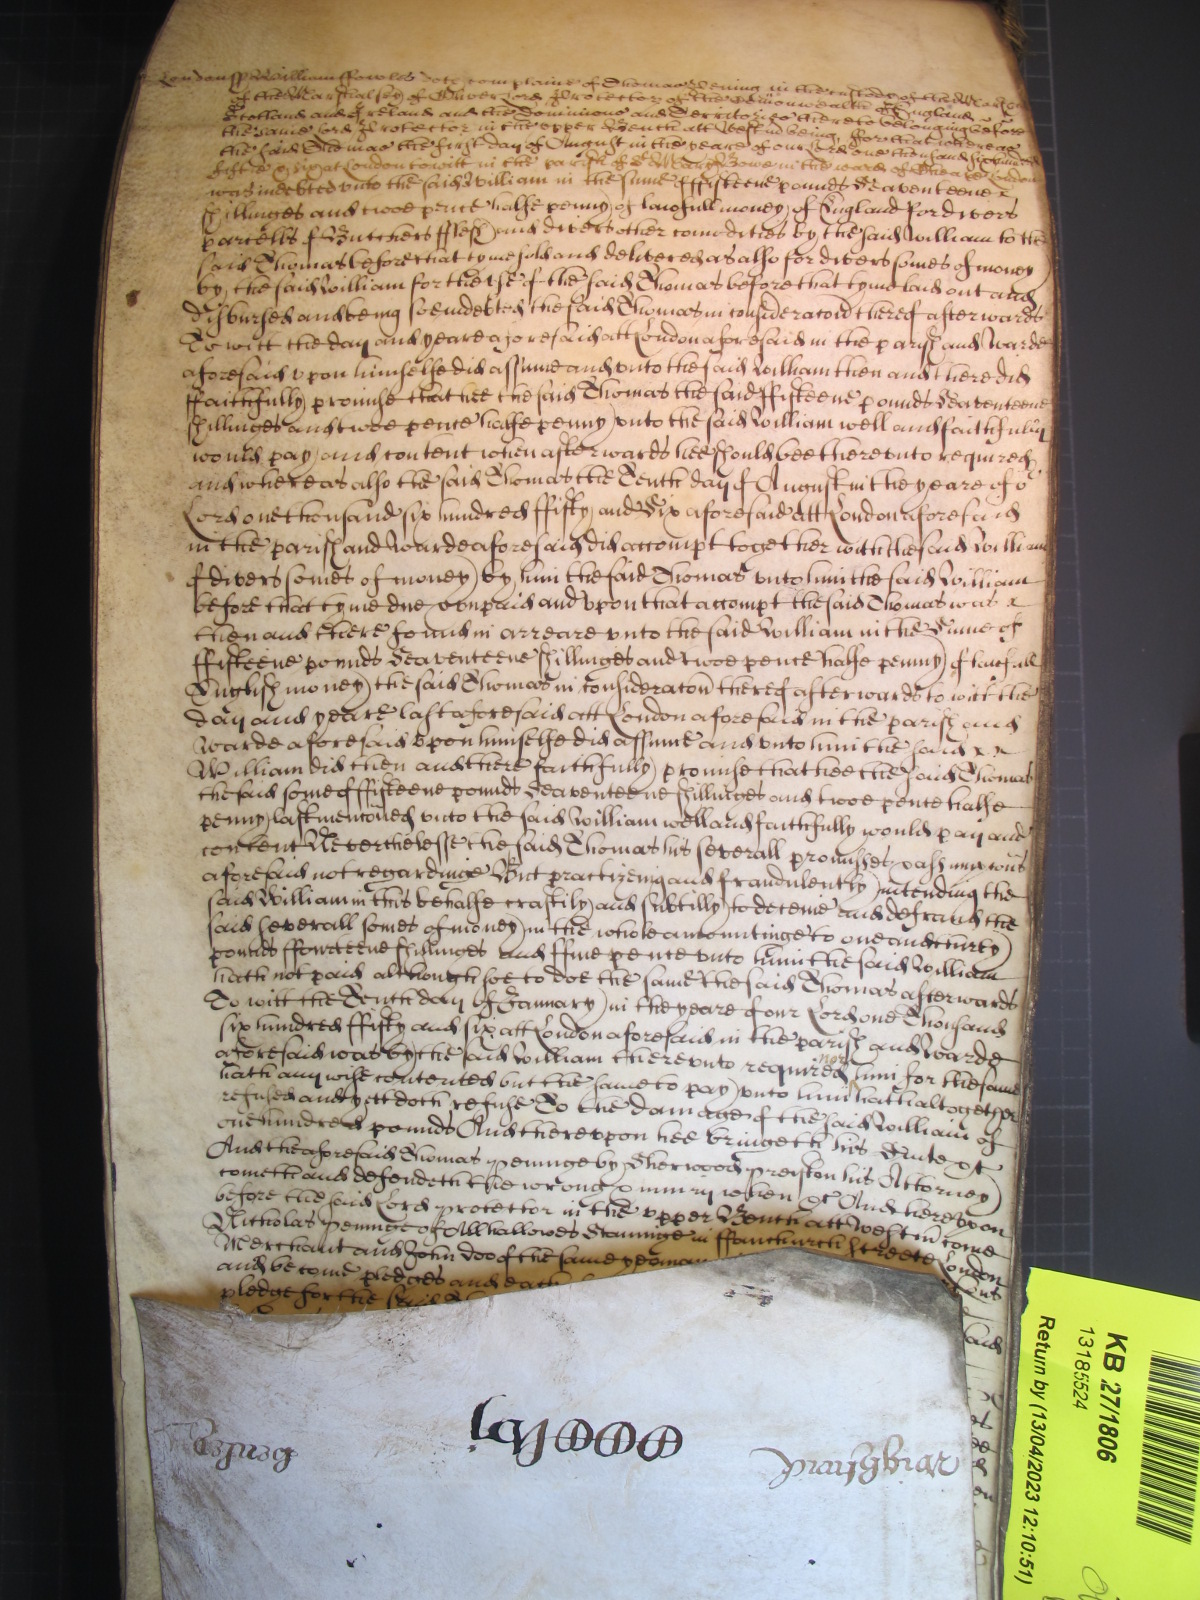 London ss William ffowles doth complaine of Thomas Pening in the custody of the Marshall
of the Marshalsey of Oliver Lord Protector of the Comonwealth of England
Scotland and Ireland and the Dominions and Territories thereto belonging before
the same Lord Protector in the upper Bench att Westm being, for that whereas
the said Thomas the first day of August in the yeare of our Lord one thousand six hundred
fiftie & six at London to witt in the parish of St Mary Bowe in the ward of Cheape London
was indebted unto the said William in the sume of ffifteene pounds Seaventeene
shillinges and twoe pence halfe penny of lawfull money of England for divers
parcells of Butchers fflesh and divers other comodities by the said William to the
said Thomas before that tyme sold and delivered as also for divers somes of money
by the said William for the use of the said Thomas before that tyme laid out and
disbursed and being soe indebted the said Thomas in consideracon thereof afterwards
To witt the day and yeare aforesaid att London aforesaid in the parish and Warde
aforesaid upon himselfe did assume and unto the said William then and there did
ffaithfully promise that hee the said Thomas the said ffifteene pounds Seaventeene
shillinges and twoe pence halfe penny unto the said William well and faithfully
would pay and content when afterwards hee should bee thereunto required
and whereas also the said Thomas the Tenth day of August in the yeare of or
Lord one thousand six hundred ffifty and Six aforesaid att London aforesaid
in the parish and Warde aforesaid did accompt together with the said William
of divers somes of money by him the said Thomas unto him the said William
before that tyme due & unpaid and upon that accompt the said Thomas was
then and there found in arreare unto the said William in the Sume of
ffifteene pounds Seaventeene shillinges and twoe pence halfe penny of lawfull
English money the said Thomas in consideracon thereof afterwards to witt the
day and yeare last aforesaid att London aforesaid in the parish and
Warde aforesaid upon himselfe did assume and unto him the said
William did then and there faithfully promise that hee the said Thomas
the said some of ffifteene pounds Seaventeene shillinges and twoe pence halfe
penny last menconed unto the said William well and faithfully would pay and
content Neverthelesse the said Thomas his severall promisses & assumpcons
aforesaid not regardinge But practizeing and fraudulently intending the
said William in this behalfe craftily and subtilly to deceive and defraud the
said severall somes of money in the whole amountinge to one and thirty
pounds ffowerteene shillinges and ffive pence unto him the said William
hath not paid although soe to doe the same the said Thomas afterwards
To witt the Tenth day of January in the yeare of our Lord one Thousand
six hundred ffifty and six att London aforesaid in the parish and Warde
aforesaid was by the said William thereunto required nor him for the same
hath any wise contented but the same to pay unto him hath altogether
refused and yett doth refuse To the damage of the said William of
one hundred pounds And thereupon hee bringeth his Suite &c
And the aforesaid Thomas Peninge by Sherwood Preiston his Attorney
cometh and defendeth the wrong & iniury when &c And hereupon
before the said Lord Protector in the upper Bench att Westm come
Nicholas Peninge of Allhallowes Staninge in ffanchurch streete London
Merchant and John Doo of the same yeoman
and become pledges and each
pledge for the said
1000li
KB 27/1806
13185524
Return by (13/04/2023 12:10:51)